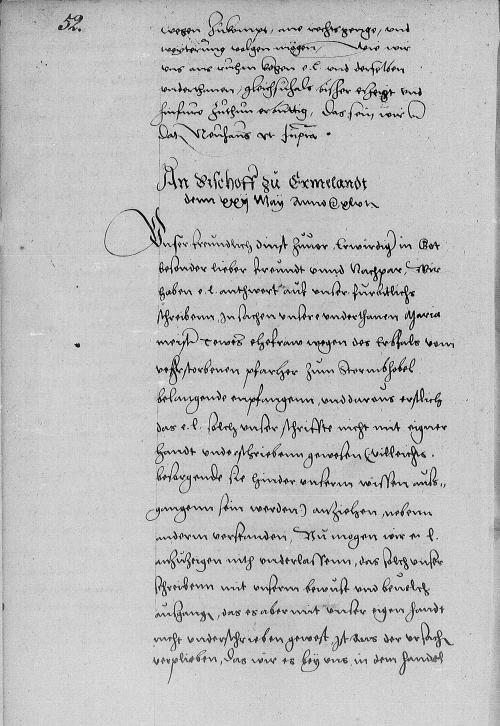 52.
wegen zukompt, ane rechtsgenge, und
weyterung volgen mögen, wie wir
uns an e.l. und derselben
underthanen, gleichsfals bisher erzeigt und
hinfuro zuthun erbuttig, das sein wir
dat Neuhaus ut supra.
An Bischoff zu Ermelandt
denn xxij May Anno xlvi
Unser freundlich dinst zuvor. Erwirdig in Got
besonder lieber freundt unnd Nachpar, Wir
haben e.l. anthwort auf unser furbitlichs
schreibenn, In sachen unsere underthanen Maria
meister Tewes ehefraw wegen des Erbfals vom
verstorbenen pfarher zum Sternbhobel
belangende empfangenn, und daraus erstlich
das e.l. solch unser schriffte nicht mit eigner
handt underschriebenn gewesen (villeicht
besorgende sie hinder unserm wissen aus-
gangenn sein werden) anziehen, nebenn
anderm verstanden, Nu mogen wir e. l.
anzuzeigen nith underlassenn, das solch unser
schreibenn mit unserm bewust und bevelch
ausgangen, das es aber mit unser eigen handt
nicht underschrieben gewest ist aus der ursach
verplieben, das wir es bey uns in dem handel